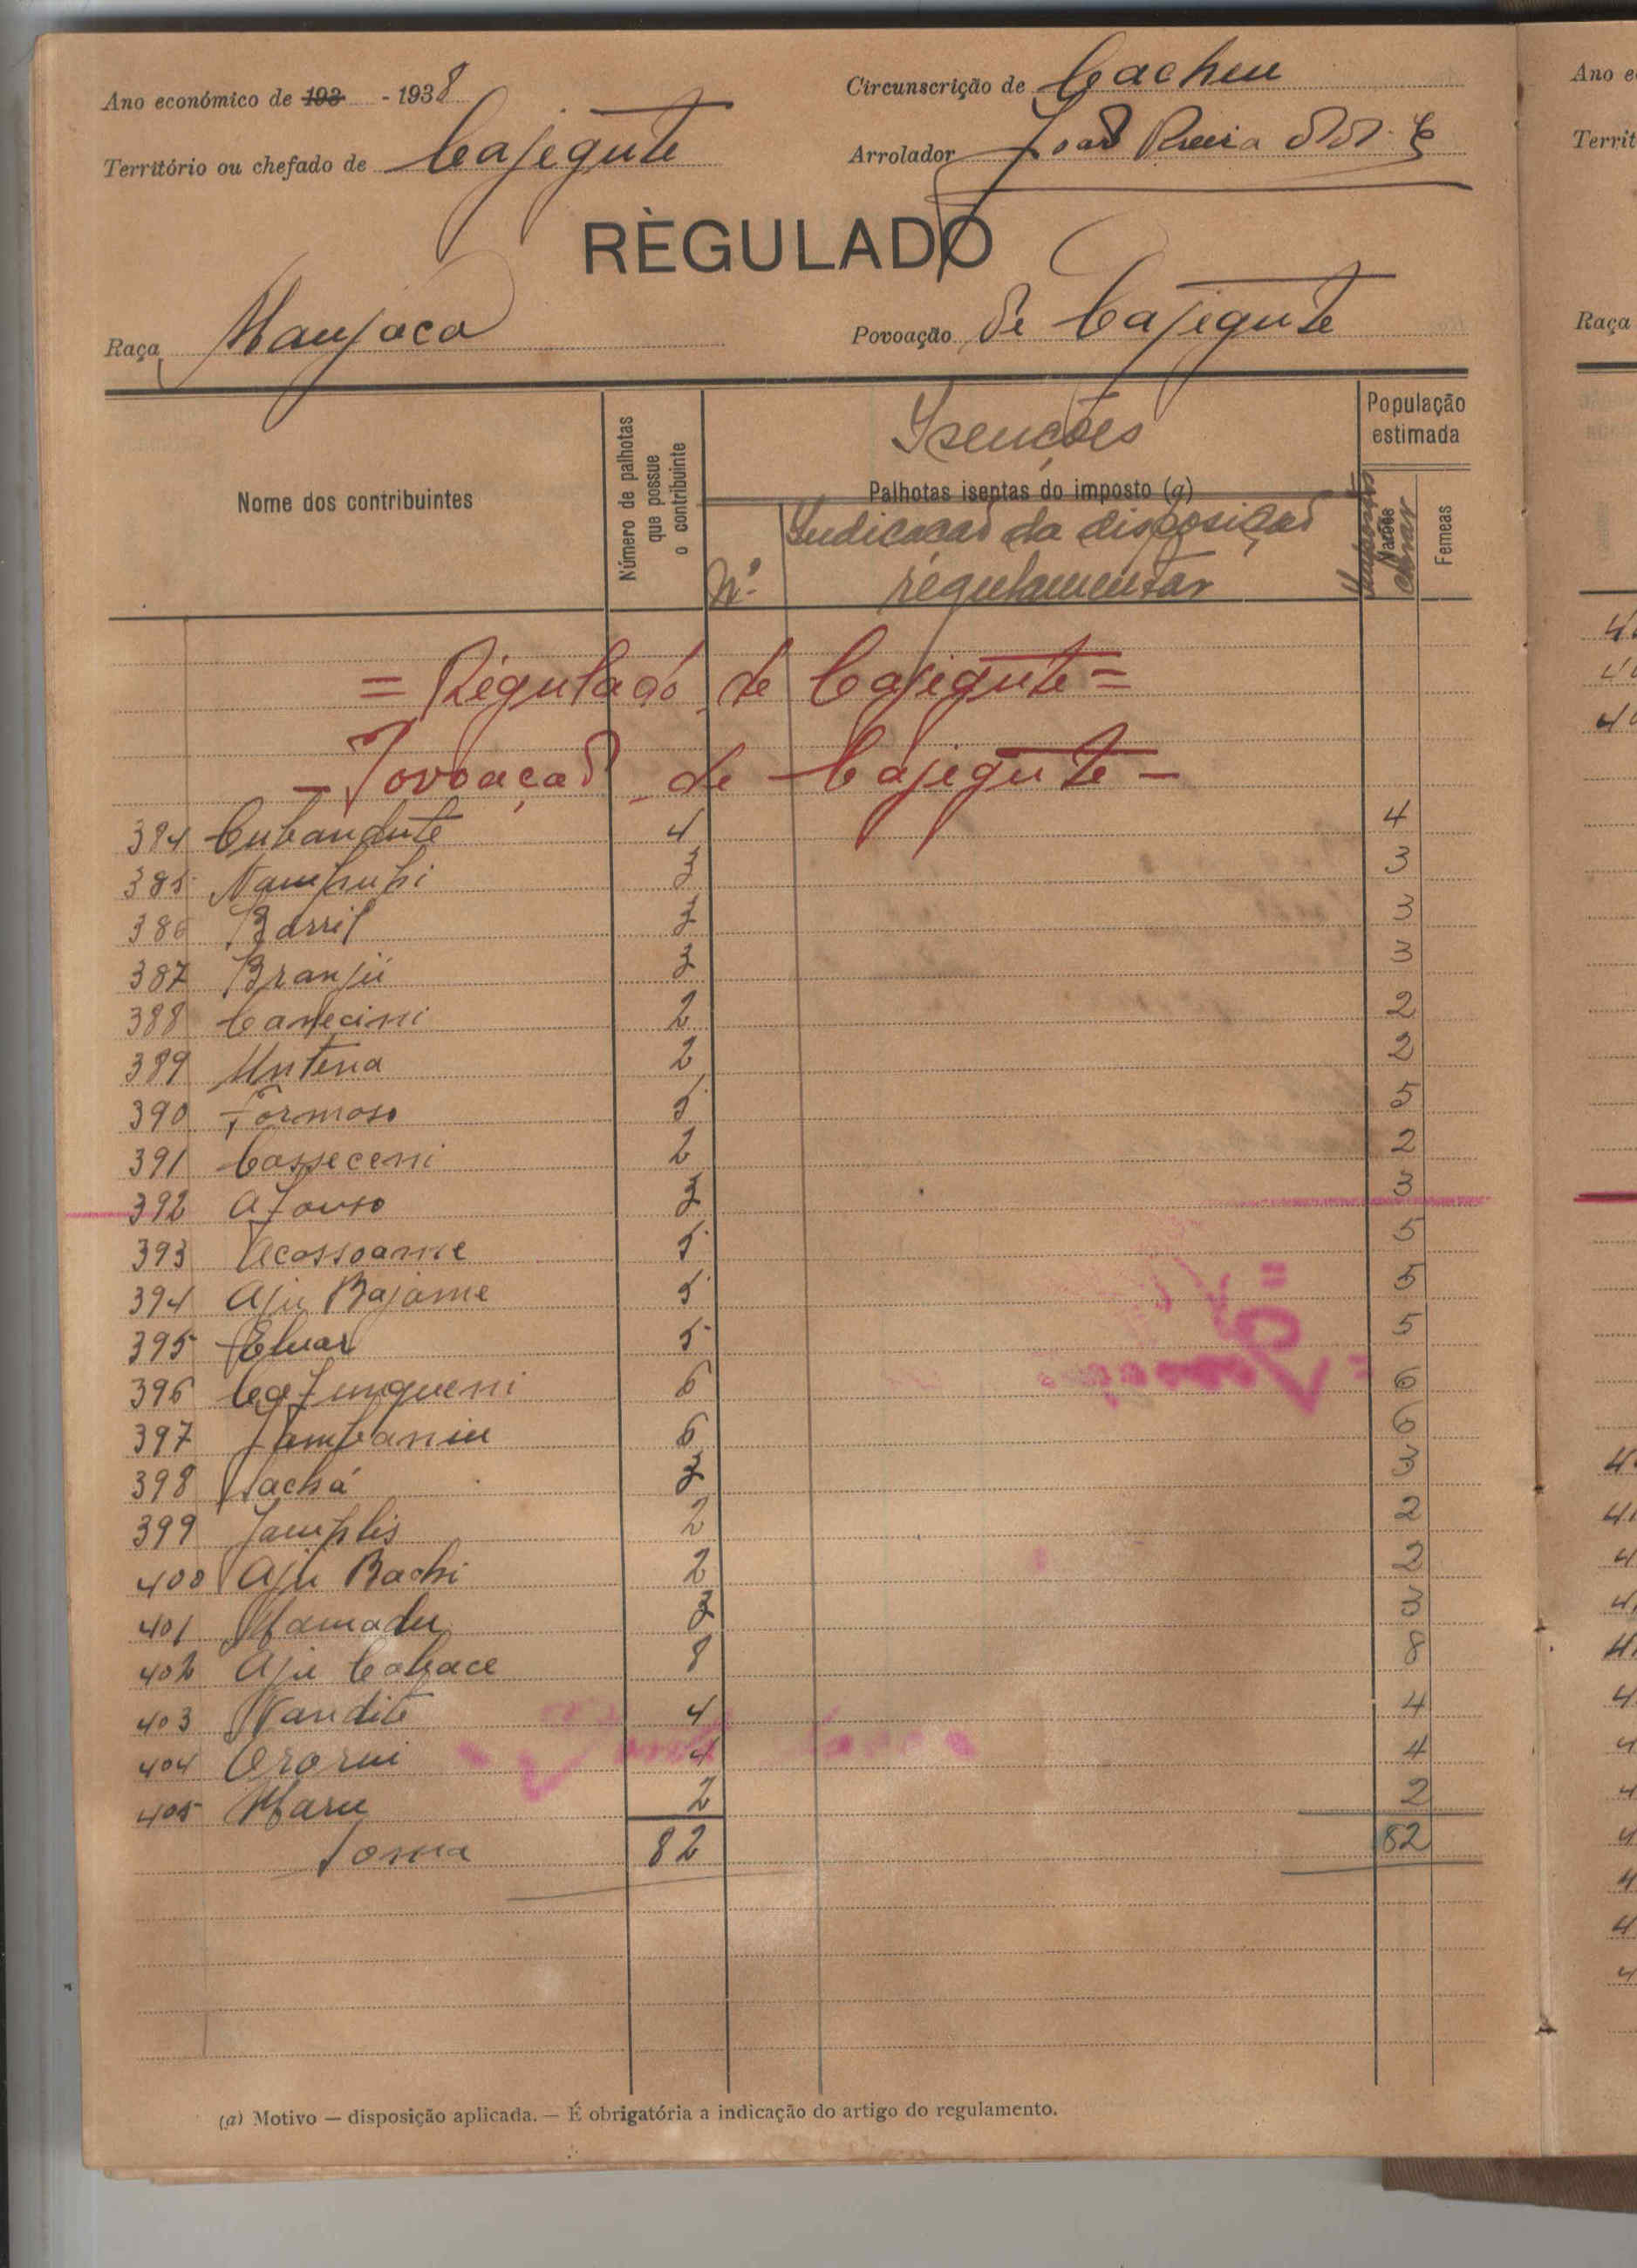 Ano económico de 193 - 1938
Circunscrição de Cacheu
Território ou chefado de Cajegute
Arrolador João
RÈGULADO
Raça Manjaca
Povoação de Cajegute
Nome dos contribuintes
Número de palhotas que possue o contribuinte
Isenções
Palhotas iseptas do imposto (a)
Nº
Indicação da disposição
regulamentar
População estimada
Femeas
= Régulado de Cajegute =
- Povoação de Cajegute -
384 Cubandute 4 4
385 Nampupi 3 3
386 Barril 3 3
387 Branjú 3 3
388 2 2
389 Untena 2 2
390 Formoso 5 5
391 Casseceni 2 2
392 Afonso 3 3
393 Acossoame 5 5
394 Aju Bajame 5 5
395 5 5
396 6 6
397 6 6
398 3 3
399 Jamplis 2 2
400 Aju Bachi 2 2
401 Mamadu 3 3
402 Aju 8 8
403 Nandite 4 4
404 4 4
405 2 2
Soma 82 82
(a) Motivo — disposição aplicada. — É obrigatória a indicação do artigo do regulamento.
Ano e
Territ
Raça